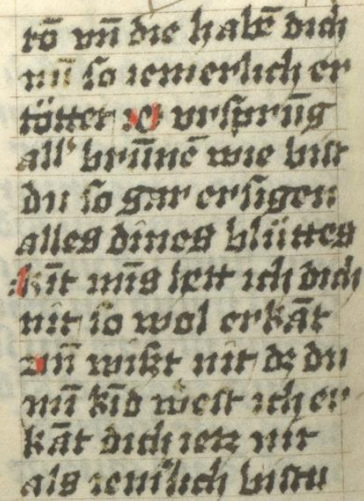 rō vn̄ die habē dich
nu̇ so iemerlich er
tötter O vrsprūg
all' brūnē wie bist
du so gar ersigen
alles dines blüttes
kīt mīs hett ich dich
nit so wol erkāt
vn̄ wist nit dz du
mī kīd west ich er
kāt dich ietz nit
als iem̄lich bistu